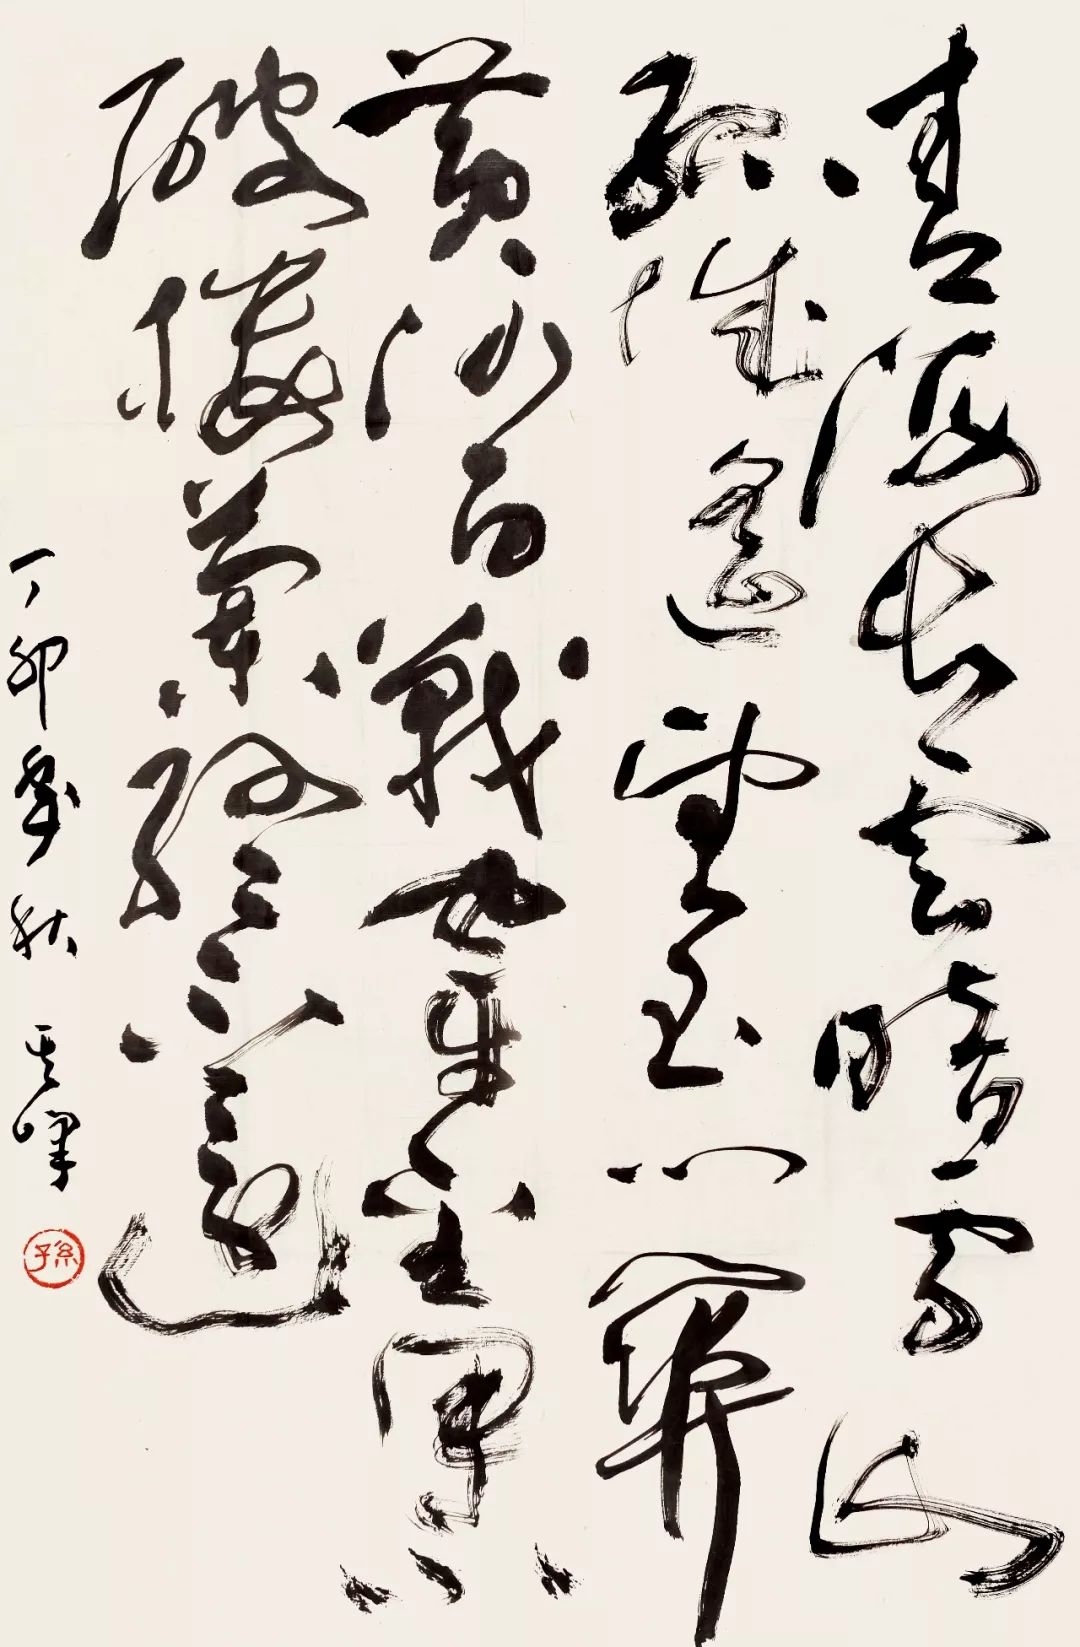 青海長雲暗雪山
孤城遙望玉門關
黃沙百戰穿金甲不
破樓蘭終不還
丁卯年秋 其峰
孫